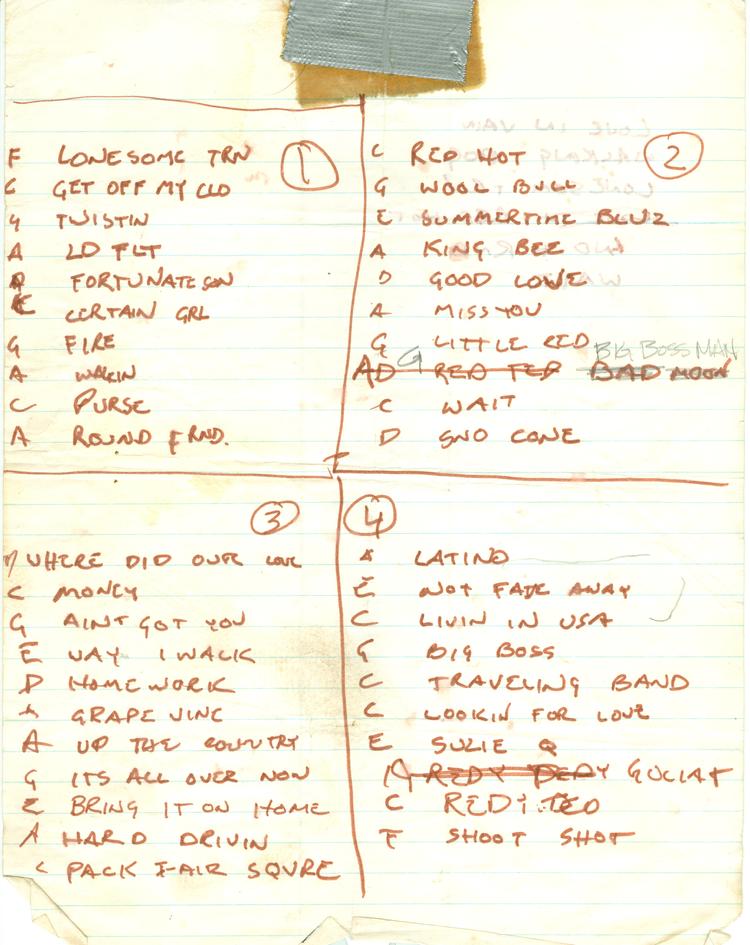 1
F LONESOME TRN
G GET OFF MY CLD
G TWISTIN
A LD FLT
A FORTUNATE SON
E CERTAIN GRL
G FIRE
A WALKIN
C PURSE
A ROUND FRND.
2
C RED HOT
G WOOL BULL
E SUMMERTIME BLUZ
A KING BEE
D GOOD LOVE
A MISS YOU
G LITTLE RED
AD G RED TED BAD MOON BIG BOSS MAN
C WAIT
D SNO CONE
3
WHERE DID OUR LOVE
C MONEY
G AINT GOT YOU
E WAY I WALK
D HOMEWORK
A GRAPE VINE
A UP THE COUNTRY
G ITS ALL OVER NOW
E BRING IT ON HOME
A HARD DRIVIN
C PACK FAIR SQVRE
4
A LATINO
E NOT FADE AWAY
C LIVIN IN USA
G BIG BOSS
C TRAVELING BAND
C LOOKIN FOR LOVE
E SUZIE Q
REDY TEDY GOLIAT
C REDY TED
F SHOOT SHOT